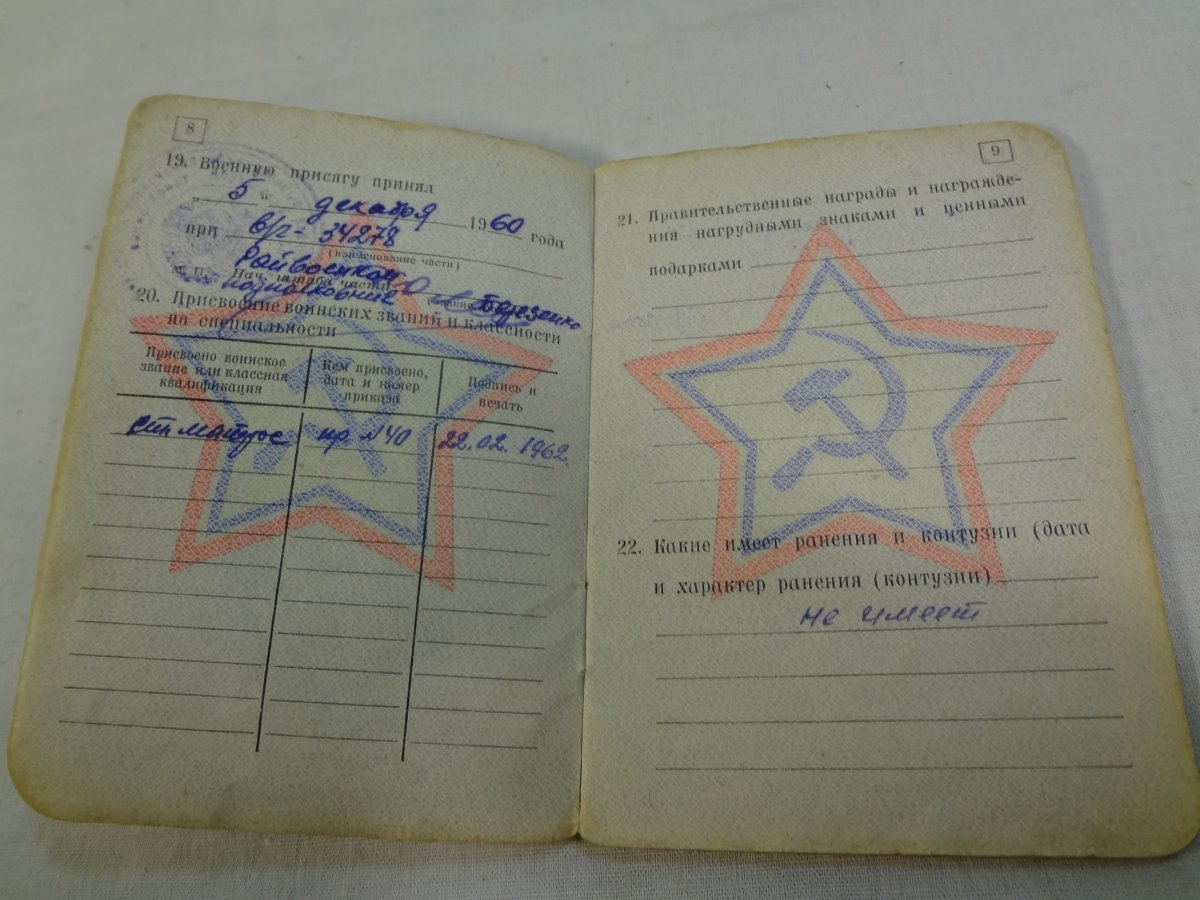 8
19. Военную присягу принял
„ 5 “ декабря 1960 года
при в/ч - 34278
(наименование части)
Райвоенком
М. П. Нач. штаба части
подполковник
20. Присвоение воинских званий и классности
по специальности
Присвоено воинское звание или классная квалификация
Кем присвоено, дата и номер приказа
Подпись и печать
ст. матрос пр №40 22.02. 1962.
9
21. Правительственные награды и награжде-
ния нагрудными знаками и ценными
подарками
22. Какие имеет ранения и контузии (дата
и характер ранения (контузии)
не имеет